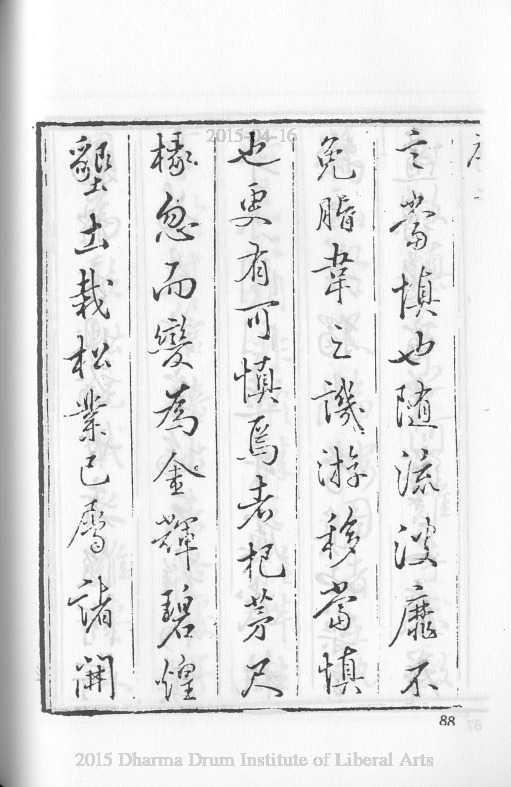 言當慎也隨流波靡不
免脂韋之譏游移當慎
也更有可慎焉者把茅尺
椽忽而變為金輝碧煌
墾土栽松業已屬諸開
88
2015-04-16
2015 Dharma Drum Institute of Liberal Arts